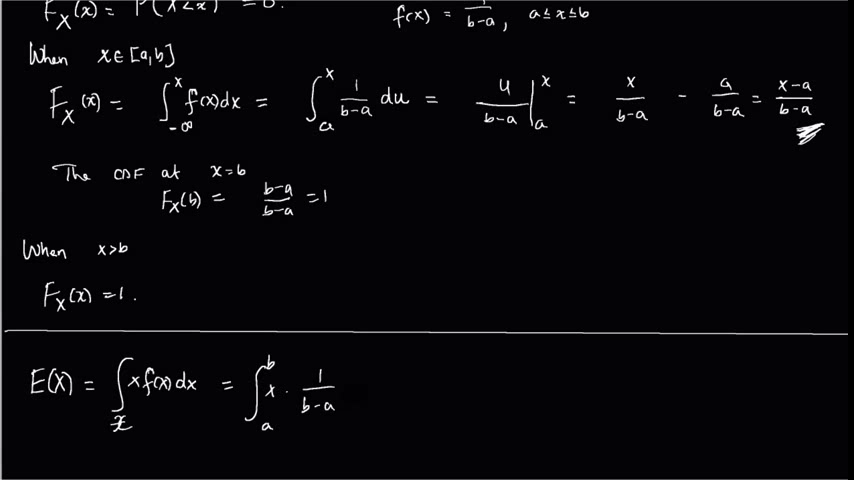 F_X(x) = P(X<x) = 0.
f(x) = 1/(b-a), a≤x≤b
When x∈[a,b]
F_X(x) = ∫_{-∞}^{x} f(x)dx = ∫_{a}^{x} 1/(b-a) du = u/(b-a) |_{a}^{x} = x/(b-a) - a/(b-a) = (x-a)/(b-a)
The CDF at x=b
F_X(b) = (b-a)/(b-a) = 1
When x>b
F_X(x) = 1.
E(X) = ∫_{x} x f(x) dx = ∫_{a}^{b} x · 1/(b-a)